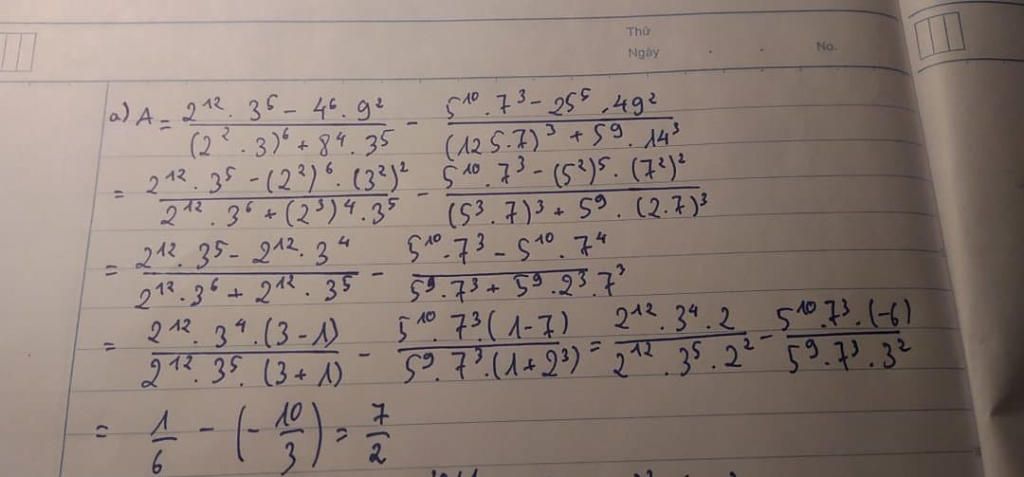 Thứ
Ngày . . No.
a) A = \frac{2^{12} . 3^5 - 4^6 . 9^2}{(2^2 . 3)^6 + 8^4 . 3^5} - \frac{5^{10} . 7^3 - 25^5 . 49^2}{(125.7)^3 + 5^9 . 14^3}
= \frac{2^{12} . 3^5 - (2^2)^6 . (3^2)^2}{2^{12} . 3^6 + (2^3)^4 . 3^5} - \frac{5^{10} . 7^3 - (5^2)^5 . (7^2)^2}{(5^3 . 7)^3 + 5^9 . (2.7)^3}
= \frac{2^{12} . 3^5 - 2^{12} . 3^4}{2^{12} . 3^6 + 2^{12} . 3^5} - \frac{5^{10} . 7^3 - 5^{10} . 7^4}{5^9 . 7^3 + 5^9 . 2^3 . 7^3}
= \frac{2^{12} . 3^4 . (3 - 1)}{2^{12} . 3^5 . (3 + 1)} - \frac{5^{10} . 7^3 (1 - 7)}{5^9 . 7^3 . (1 + 2^3)} = \frac{2^{12} . 3^4 . 2}{2^{12} . 3^5 . 2^2} - \frac{5^{10} . 7^3 . (-6)}{5^9 . 7^3 . 3^2}
= \frac{1}{6} - (-\frac{10}{3}) = \frac{7}{2}